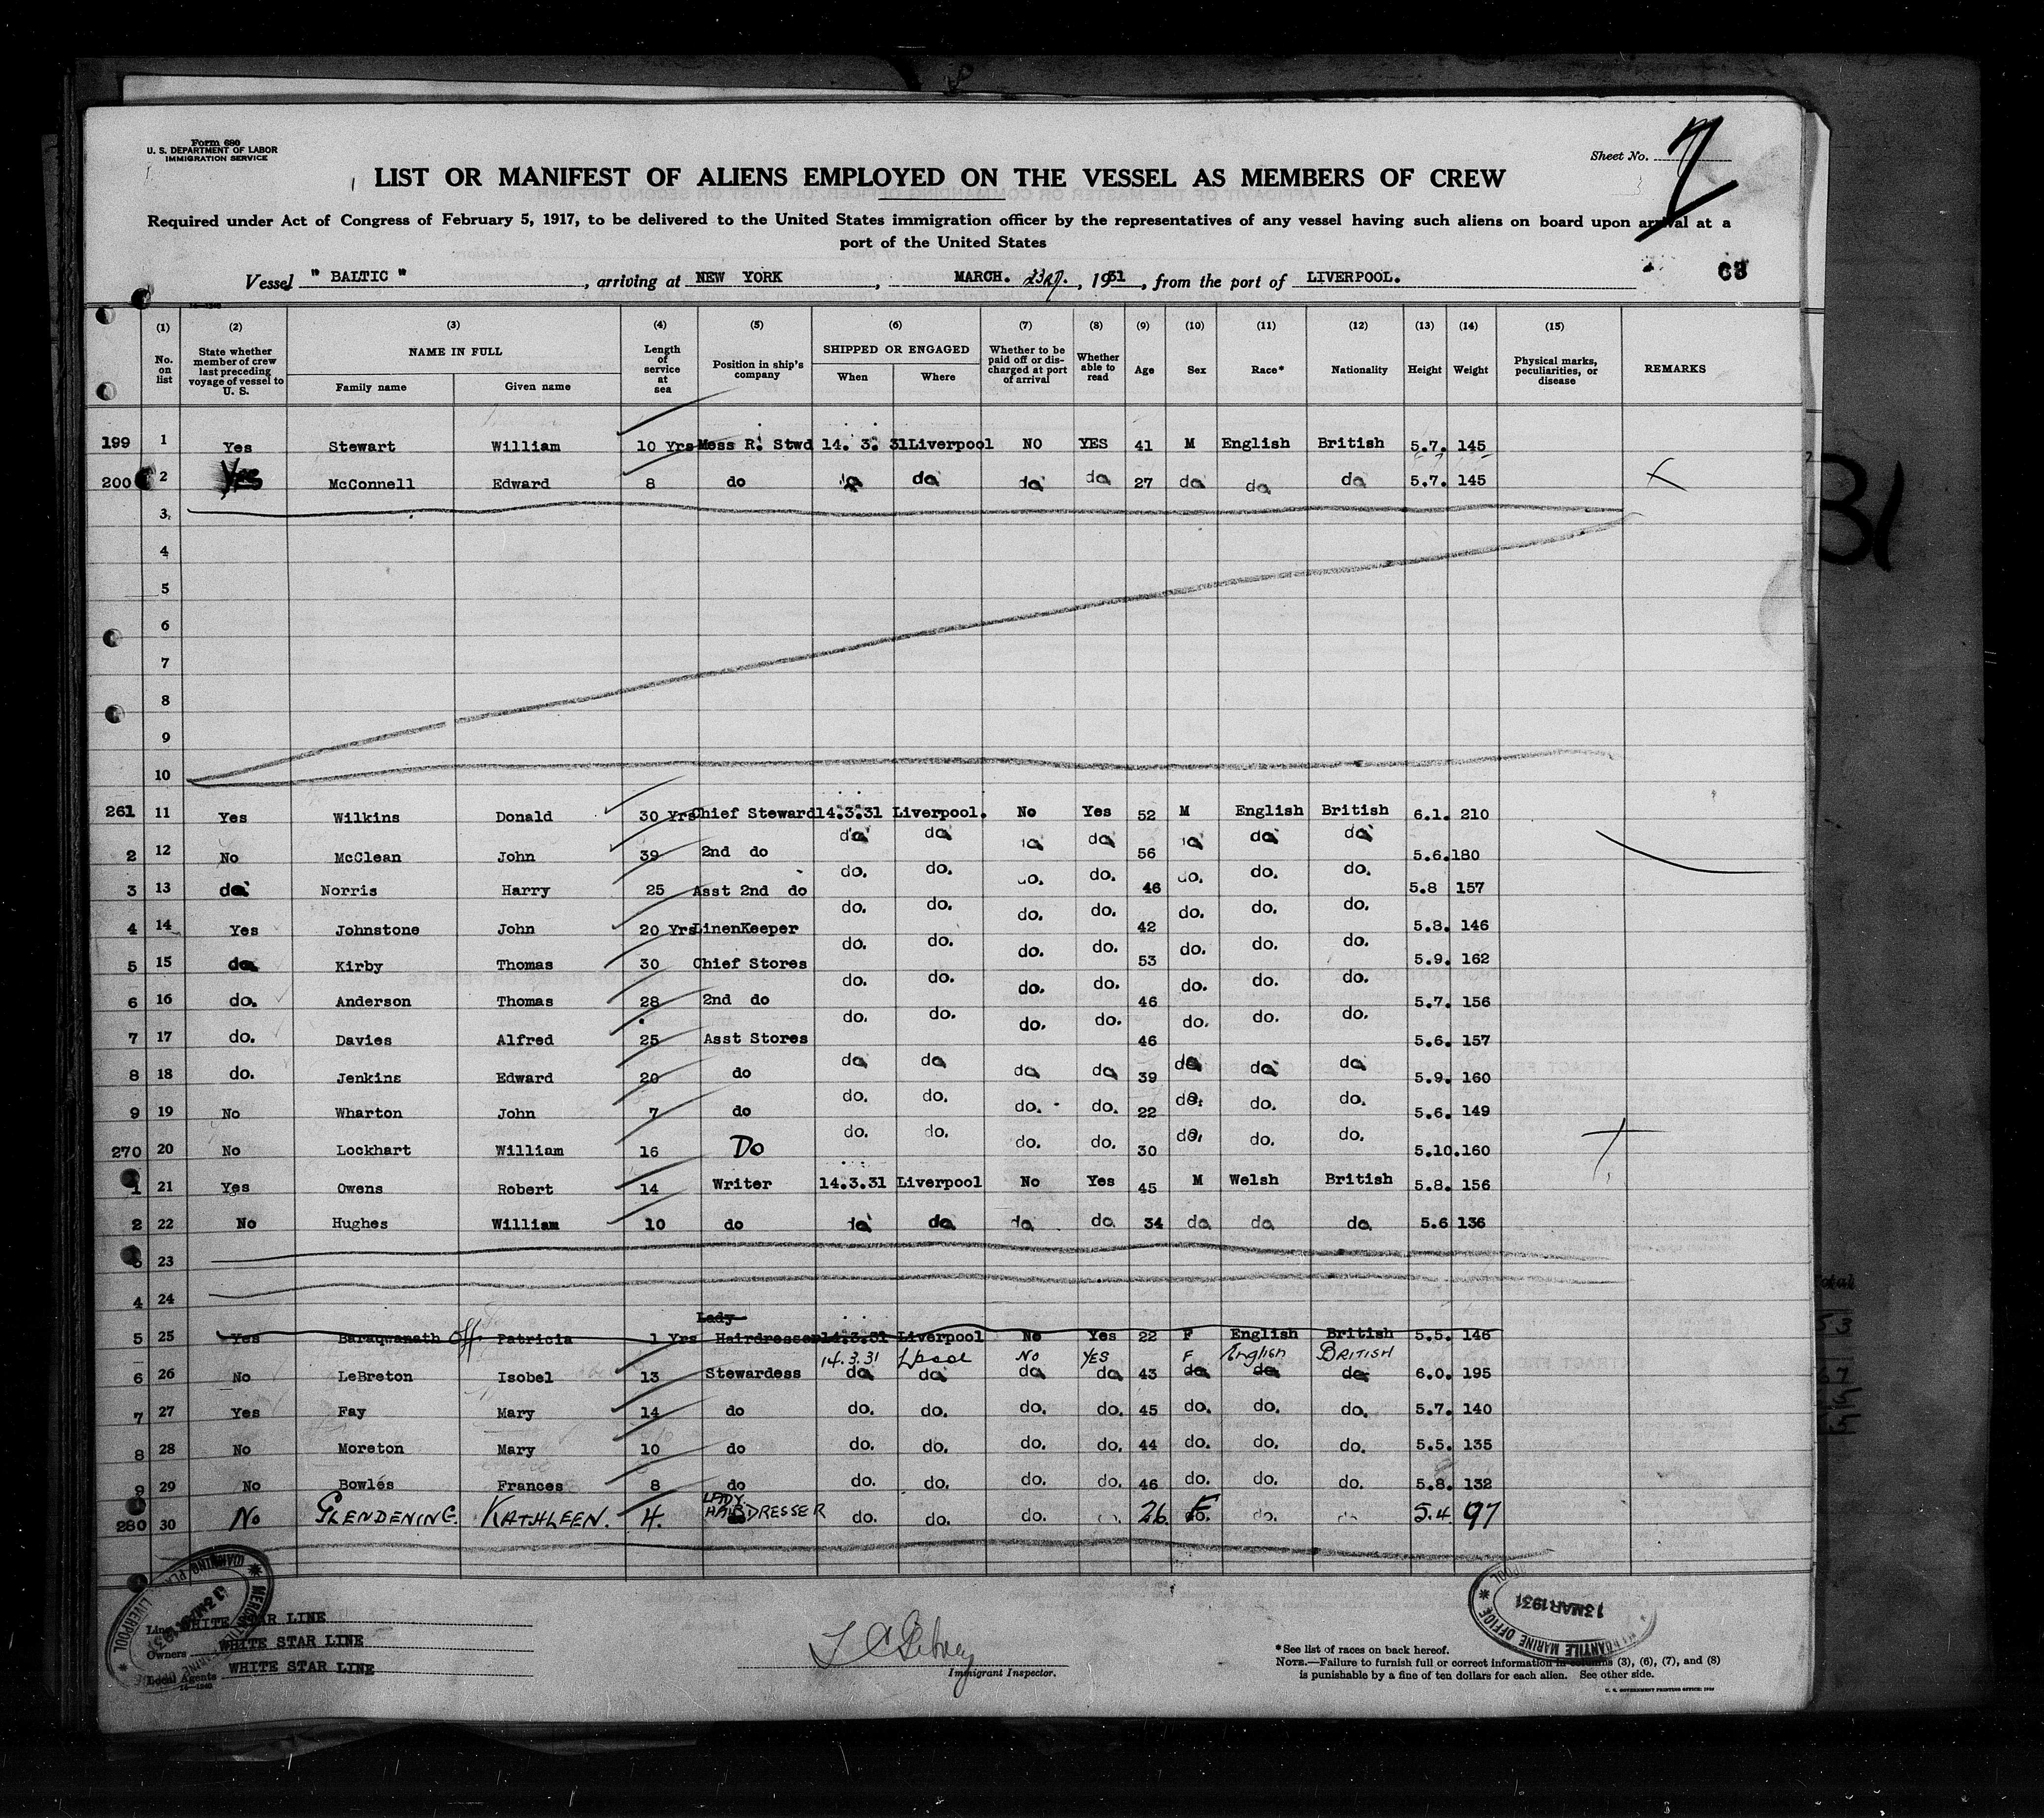 Form 680
U. S. DEPARTMENT OF LABOR
IMMIGRATION SERVICE
Sheet No. 7
LIST OR MANIFEST OF ALIENS EMPLOYED ON THE VESSEL AS MEMBERS OF CREW
Required under Act of Congress of February 5, 1917, to be delivered to the United States immigration officer by the representatives of any vessel having such aliens on board upon arrival at a
port of the United States
Vessel " BALTIC ", arriving at NEW YORK, MARCH. 23rd., 1931, from the port of LIVERPOOL.
68
(1) (2) (3) (4) (5) (6) (7) (8) (9) (10) (11) (12) (13) (14) (15)
No. on list State whether member of crew last preceding voyage of vessel to U. S. NAME IN FULL Family name Given name Length of service at sea Position in ship's company SHIPPED OR ENGAGED When Where Whether to be paid off or discharged at port of arrival Whether able to read Age Sex Race* Nationality Height Weight Physical marks, peculiarities, or disease REMARKS
199 1 Yes Stewart William 10 Yrs Mess R. Stwd 14. 3. 31 Liverpool NO YES 41 M English British 5.7. 145
200 2 Yes McConnell Edward 8 do do do do do 27 do do do 5.7. 145
3
4
5
6
7
8
9
10
261 11 Yes Wilkins Donald 30 Yrs Chief Steward 14.3.31 Liverpool. No Yes 52 M English British 6.1. 210
2 12 No McClean John 39 2nd do do do do do 56 do do do 5.6. 180
3 13 do Norris Harry 25 Asst 2nd do do. do. do. do. 46 do. do. do. 5.8 157
4 14 Yes Johnstone John 20 Yrs LinenKeeper do. do. do. do. 42 do. do. do. 5.8. 146
5 15 do Kirby Thomas 30 Chief Stores do. do. do. do. 53 do. do. do. 5.9. 162
6 16 do. Anderson Thomas 28 2nd do do. do. do. do. 46 do. do. do. 5.7. 156
7 17 do. Davies Alfred 25 Asst Stores do. do. do. do. 46 do. do. do. 5.6. 157
8 18 do. Jenkins Edward 20 do do do do do 39 do do do 5.9. 160
9 19 No Wharton John 7 do do. do. do. do. 22 do. do. do. 5.6. 149
270 20 No Lockhart William 16 Do do. do. do. do. 30 do. do. do. 5.10. 160
1 21 Yes Owens Robert 14 Writer 14.3.31 Liverpool No Yes 45 M Welsh British 5.8. 156
2 22 No Hughes William 10 do do do do do 34 do do do 5.6 136
3 23
4 24
Lady
5 25 Yes Baragwanath Off Patricia 1 Yrs Hairdresser 14.3.31 Liverpool No Yes 22 F English British 5.5. 146
14.3.31 L'pool NO YES F English BRITISH
6 26 No LeBreton Isobel 13 Stewardess do do do do 43 do do do 6.0. 195
7 27 Yes Fay Mary 14 do do. do. do. do. 45 do. do. do. 5.7. 140
8 28 No Moreton Mary 10 do do. do. do. do. 44 do. do. do. 5.5. 135
9 29 No Bowles Frances 8 do do. do. do. do. 46 do. do. do. 5.8. 132
280 30 No GLENDENING. KATHLEEN. 4. LADY HAIRDRESSER do. do. do. 26. F do. do. do. 5.4. 97
Line WHITE STAR LINE
Owners WHITE STAR LINE
Local Agents WHITE STAR LINE
16—1240
Immigrant Inspector.
*See list of races on back hereof.
NOTE.—Failure to furnish full or correct information in columns (3), (6), (7), and (8)
is punishable by a fine of ten dollars for each alien. See other side.
U. S. GOVERNMENT PRINTING OFFICE
MERCANTILE MARINE OFFICE
LIVERPOOL
13 MAR 1931
31